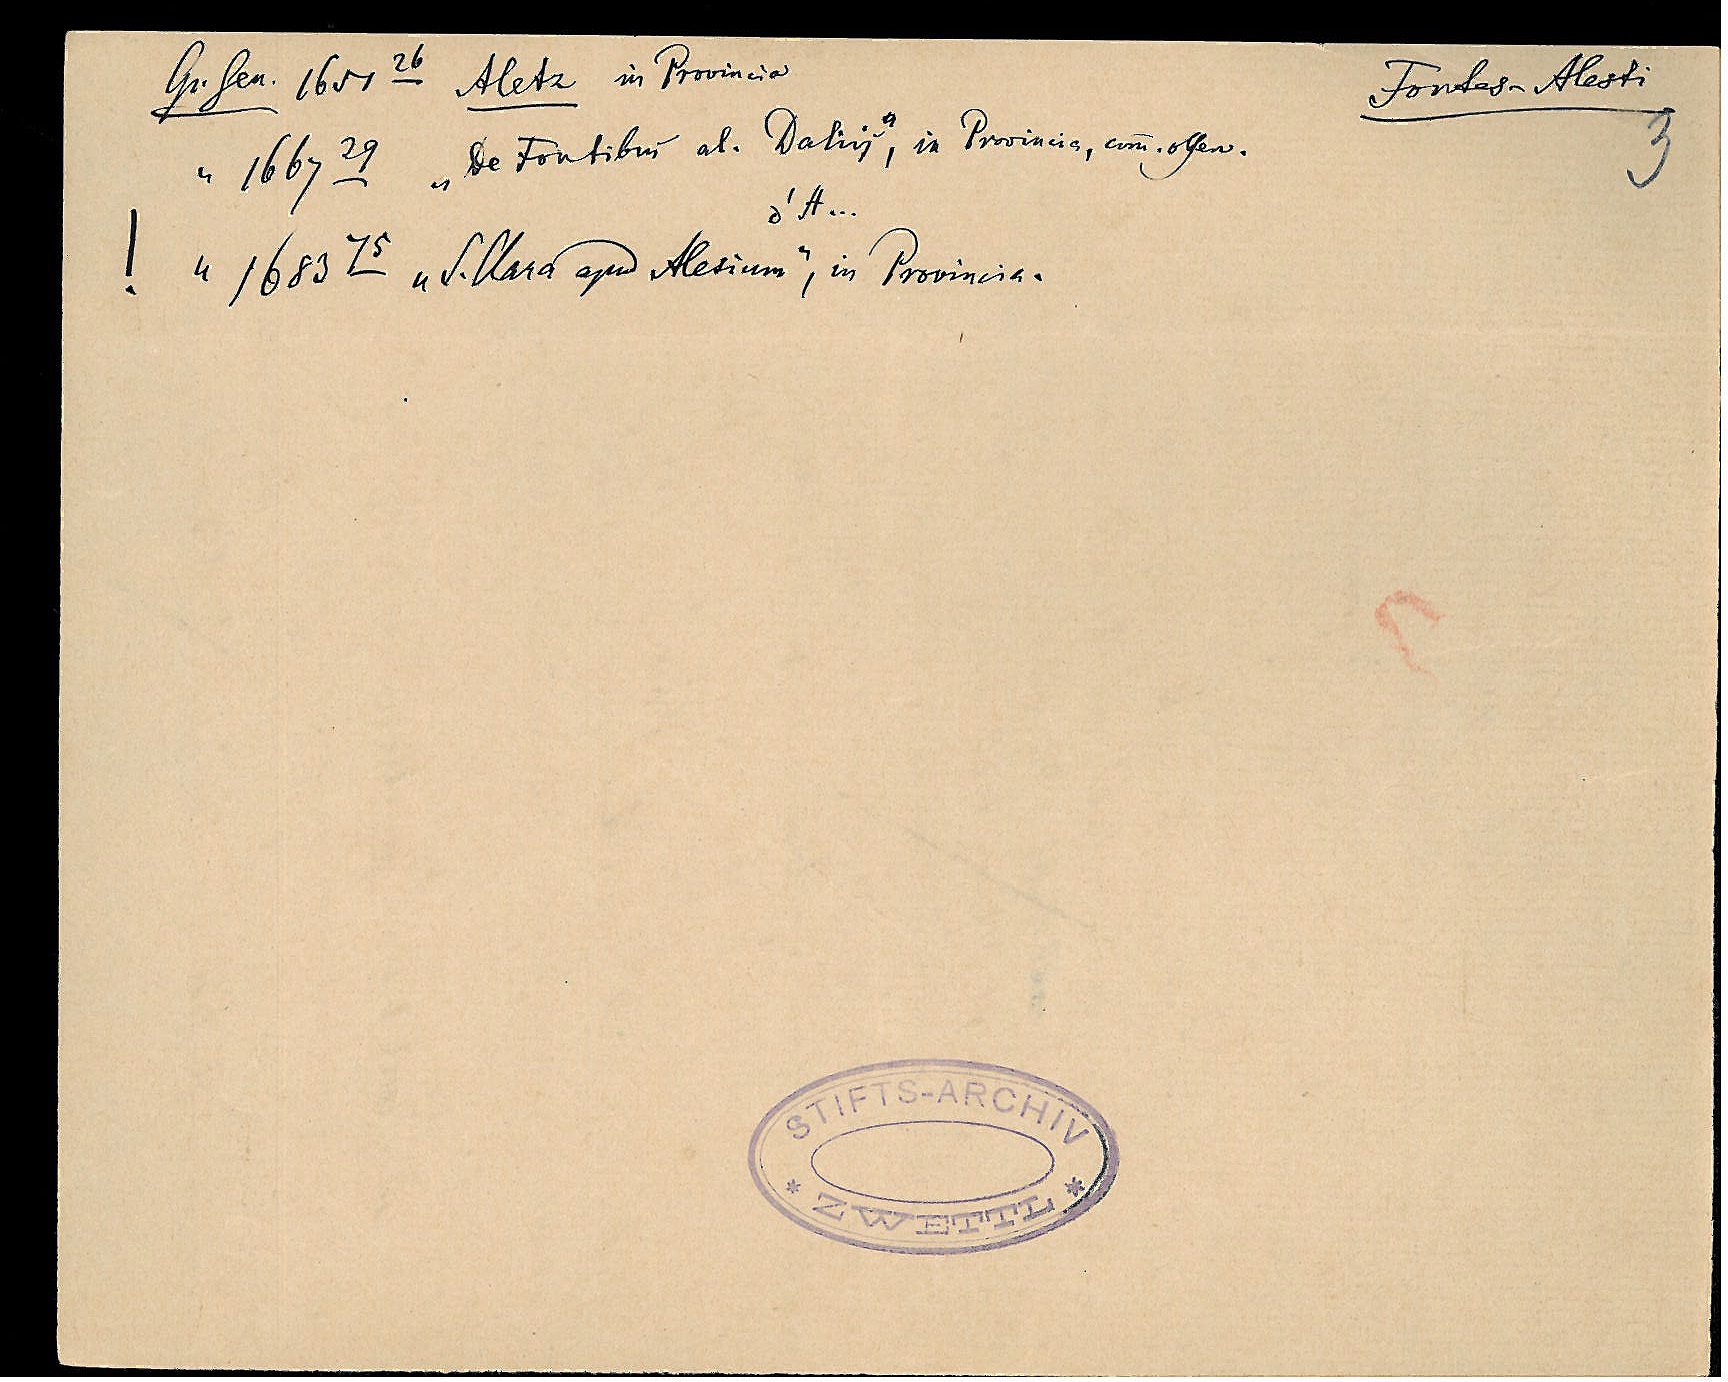 Gr. Gen. 1651 26 Aletz in Provincia
Fontes-Alesti
3
" 1667 29 „De Fontibus al. Dalij", in Provincia, com. olgen.
d'A...
! " 1683 75 „S. Clara apud Alesium", in Provincia.
STIFTS-ARCHIV
* ZWETTL *